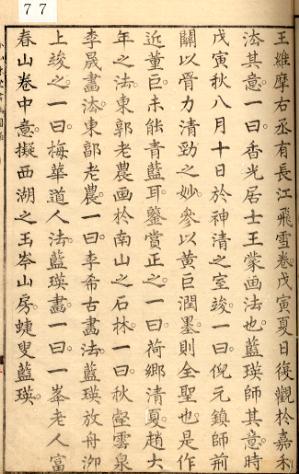 77
王維摩右丞有長江飛雪卷戊寅夏日復觀於嘉利
㳒其意一曰香光居士王蒙画法也藍瑛師其意時
戊寅秋八月十日於神清之室竣一曰倪元鎮師前
關以骨力清勁之妙參以黃巨潤墨則全聖也是作
近董巨未能青藍耳鑒賞正之一曰荷鄉清夏趙大
年之法東郭老農画於南山之石林一曰秋壑雲泉
李晟畵㳒東郭老農一曰李希古畵法藍瑛放舟泖
上竣之一曰梅華道人法藍瑛畵一曰一峯老人富
春山卷中意擬西湖之玉岑山房蜨叟藍瑛